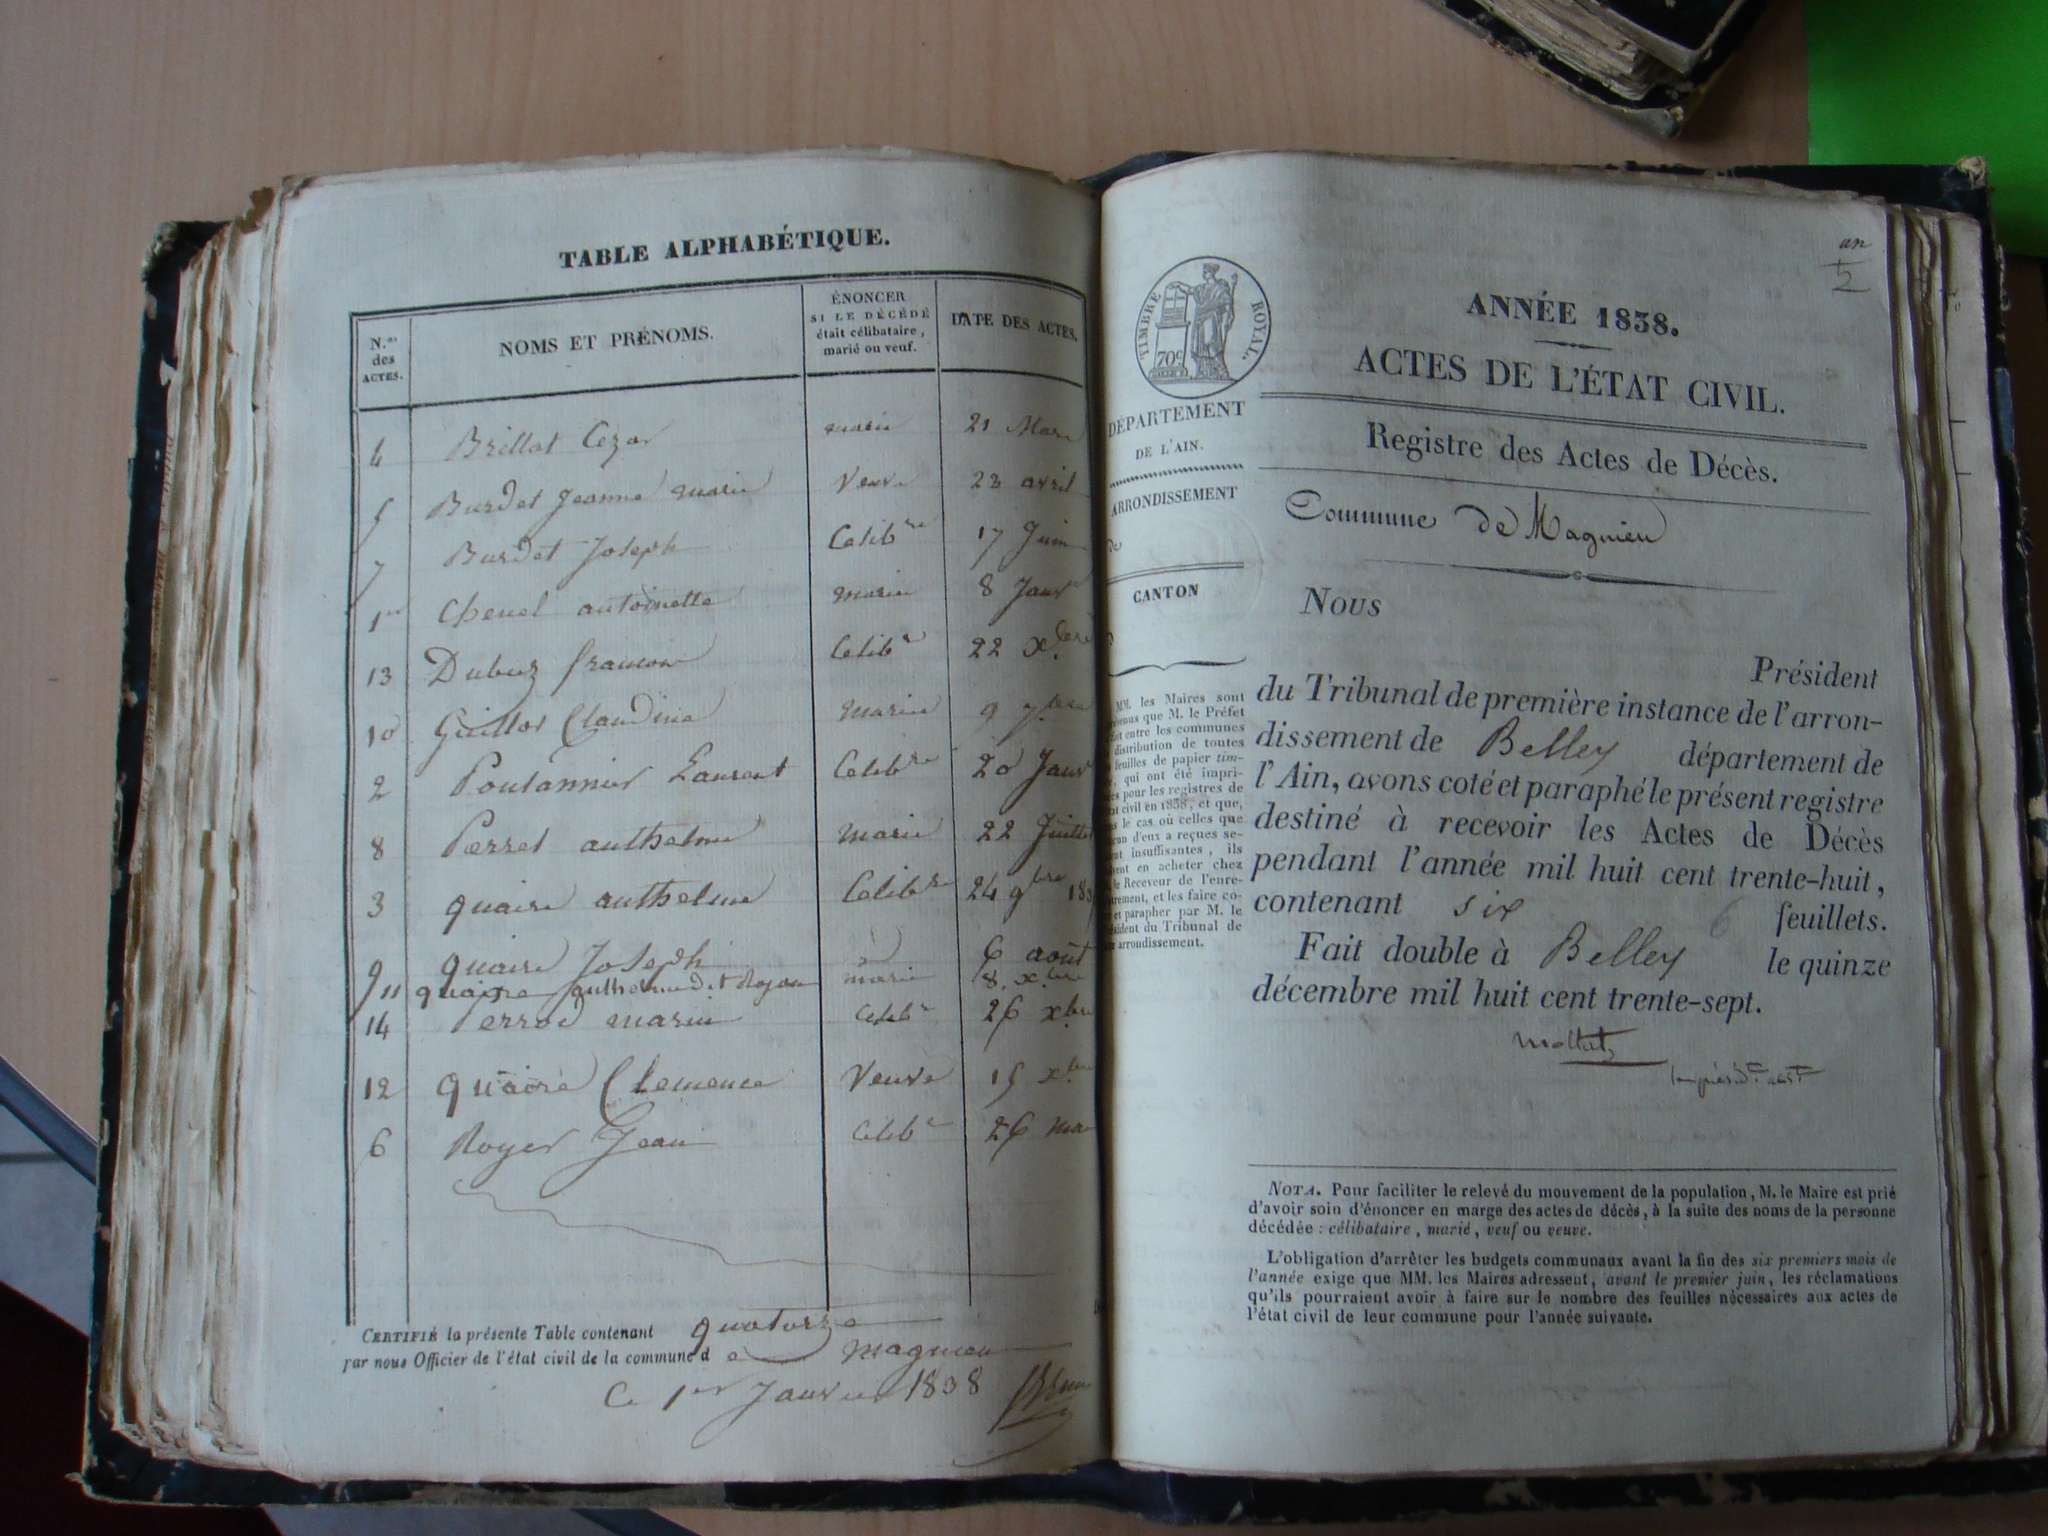 TABLE ALPHABÉTIQUE.
N.os des ACTES.
NOMS ET PRÉNOMS.
ÉNONCER
SI LE DÉCÉDÉ
était célibataire,
marié ou veuf.
DATE DES ACTES.
4 Brillat Cezar marié 21 Mars
5 Burdet Jeanne marie Veuve 23 avril
7 Burdet Joseph Celibre 17 Juin
1er Chenel antoinette marié 8 Janv
13 Dubuz francois Celibre 22 Xbre
10 Guillot Claudine Marié 9 7bre
2 Poulannier Laurent Celibre 20 Janv
8 Perret anthelme Marié 22 Juillet
3 quaire anthelme Celibre 24 9bre 183
9 quaire Joseph 6 août
11 quaire anthelme dit marié 8 Xbre
14 Perrod marie Celibre 26 Xbre
12 quaire Clemence Veuve 15 Xbre
6 Royer Jean Celibre 26 mai
CERTIFIÉ la présente Table contenant quatorze
par nous Officier de l'état civil de la commune de magnieu
Ce 1er Janvier 1838
un
2
TIMBRE ROYAL.
70c
ANNÉE 1838.
ACTES DE L'ÉTAT CIVIL.
DÉPARTEMENT
DE L'AIN.
Registre des Actes de Décès.
ARRONDISSEMENT
de
Commune de Magnieu
CANTON
MM. les Maires sont
que M. le Préfet
entre les communes
distribution de toutes
feuilles de papier tim-
, qui ont été impri-
pour les registres de
civil en 1838, et que,
le cas où celles que
d'eux a reçues se-
insuffisantes, ils
en acheter chez
le Receveur de l'enre-
, et les faire co-
et parapher par M. le
du Tribunal de
arrondissement.
Nous
Président
du Tribunal de première instance de l'arron-
dissement de Belley département de
l'Ain, avons coté et paraphé le présent registre
destiné à recevoir les Actes de Décès
pendant l'année mil huit cent trente-huit,
contenant six 6 feuillets.
Fait double à Belley le quinze
décembre mil huit cent trente-sept.
NOTA. Pour faciliter le relevé du mouvement de la population, M. le Maire est prié
d'avoir soin d'énoncer en marge des actes de décès, à la suite des noms de la personne
décédée : célibataire, marié, veuf ou veuve.
L'obligation d'arrêter les budgets communaux avant la fin des six premiers mois de
l'année exige que MM. les Maires adressent, avant le premier juin, les réclamations
qu'ils pourraient avoir à faire sur le nombre des feuilles nécessaires aux actes de
l'état civil de leur commune pour l'année suivante.